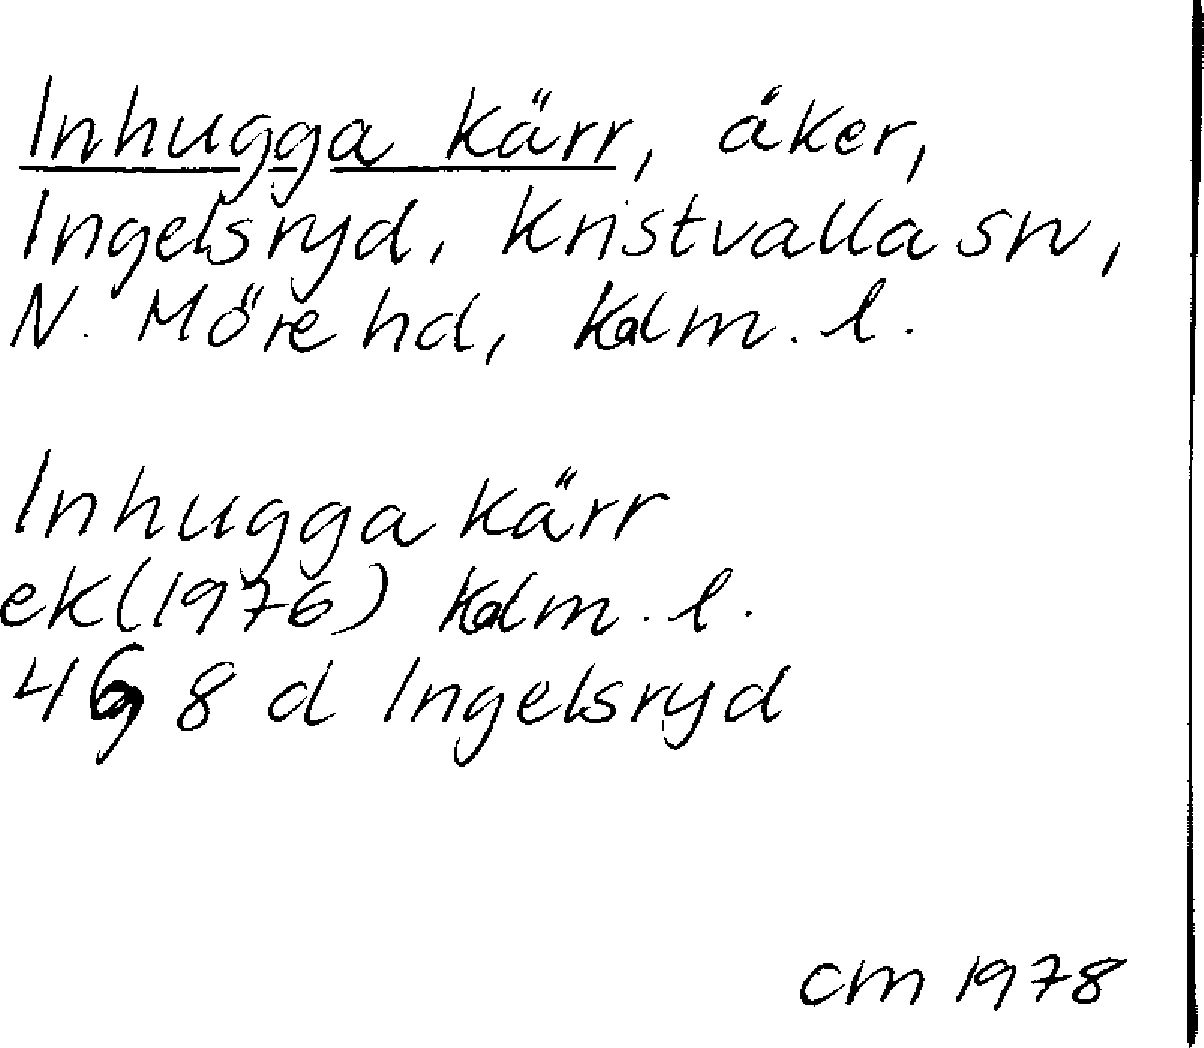 Inhugga kärr, åker,
Ingelsryd, Kristvalla sn,
N. Möre hd, Kalm. l.
Inhugga kärr
ek(1976) Kalm. l.
4G 8 d Ingelsryd
cm 1978